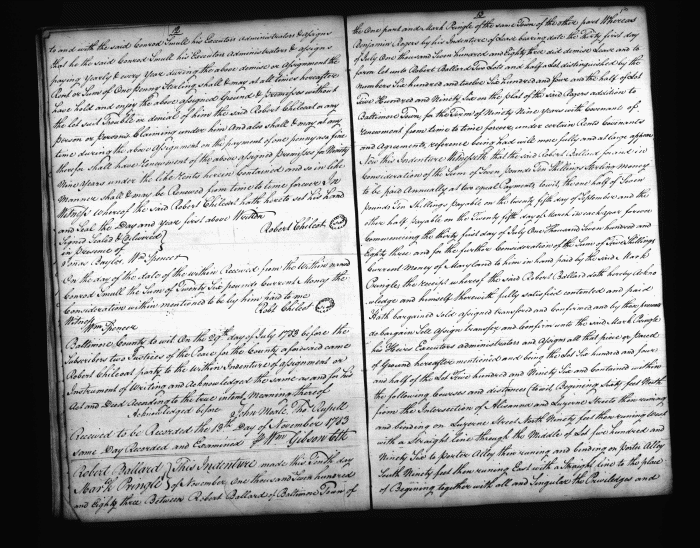 to and with the said Conrad Small his Executors Administrators & assigns
that he the said Conrad Small his Executors Administrators & assigns
paying Yearly & every Year during the above demise or assignment the
Rent or Sum of One penny Sterling shall & may at all times hereafter
have hold and enjoy the above assigned Ground & Premises without
the let suit Trouble or denial of him the said Robert Chilcoat or any
person or Persons Claiming under him And also shall & may at any
time during the above Assignment on the payment of one penny as a fine
therefor shall have Renewment of the above assigned Premises for Ninety
Nine Years under the like Rents herein Contained and so in like
Manner shall & may be Renewed from time to time forever In
Witness whereof the said Robert Chilcoat hath hereto set his hand
and Seal the Day and Year first above Written
Signed Sealed & Delivered
in presence of
Robert Chilcoat
Wm Spencer
On the day of the date of the within Received from the within named
Conrad Small the Sum of Twenty Six pounds Current Money the
Consideration within mentioned to be by him paid to me
Witness
Robt Chilcoat
Wm Spencer
Baltimore County to wit On the 29th day of July 1783 before the
Subscribers two Justices of the Peace for the County aforesaid came
Robert Chilcoat party to the within Indenture of assignment or
Instrument of Writing and Acknowledged the same as and for his
Act and Deed According to the true intent & Meaning thereof
Acknowledged before John Moale. Thos Russell
Received to be Recorded the 13th Day of November 1783
Same Day Recorded and Examined Wm Gibson Clk
Robert Ballard
Mark Pringle
This Indenture made this Tenth day
of November one thousand Seven hundred
and Eighty three Between Robert Ballard of Baltimore Town of
the One part and Mark Pringle of the same Town of the other part Whereas
Benjamin Rogers by his Indenture of Lease bearing date the thirty first day
of July One thousand Seven hundred and Eighty three did demise Leave and to
farm let unto Robert Ballard Two Lots and half a Lot distinguished by the
Numbers Six hundred and twelve Six hundred and four and the half of Lot
Five Hundred and Ninety Six on the plat of the said Rogers addition to
Baltimore Town for the Term of Ninety Nine Years with Covenants of
Renewment from time to time forever, under certain Rents Covenants
and Agreements, reference being had will more fully and at large appear
Now this Indenture Witnesseth that the said Robert Ballard for and in
Consideration of the Sum of Seven pounds Ten Shillings Sterling Money
to be paid Annually at two equal Payments towit, the one half of Seven
Pounds Ten Shillings payable on the twenty fifth day of September and the
other half Payable on the Twenty fifth day of March in each year forever
Commencing the thirty first day of July One Thousand Seven hundred and
Eighty three and for the further Consideration of the Sum of Five Shillings
Current Money of Maryland to him in hand paid by the said Mark
Pringle, the receipt whereof the said Robert Ballard doth hereby Acknow
ledge and himself therewith fully satisfied contented and paid
Hath bargained Sold assigned transferd and Confirmed and by these presents
do bargain Sell Assign transfer and Confirm unto the said Mark Pringle
his Heires Executors administrators and Assigns all that piece or parcel
of Ground hereafter mentioned and being the Lot Six hundred and four
and half of the Lot Five hundred and Ninety Six and Contained within
the following Courses and distances (towit) Beginning Sixty feet North
from the Intersection of Aliceanna and Luzerne Streets then running
and binding on Luzerne Street North Ninety feet then running West
with a Straight Line through the Middle of Lot five hundred and
Ninety Six to porter Alley then runing and binding on Porter Alley
South Ninety feet then runing East with a Straight Line to the place
of Begining together with all and Singular the Priviledges and